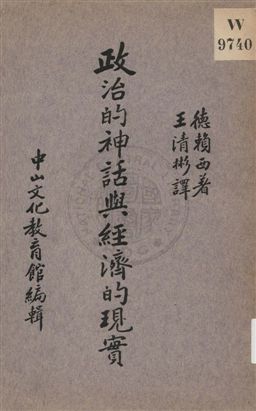 W
9740
德賴西著
王清彬譯
政治的神話與經濟的現實
中山文化教育館編輯